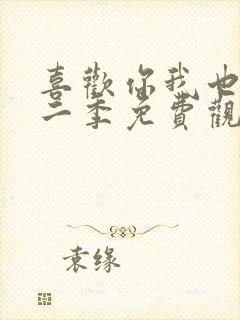 喜歡你我也
二季免費觀
袁缘